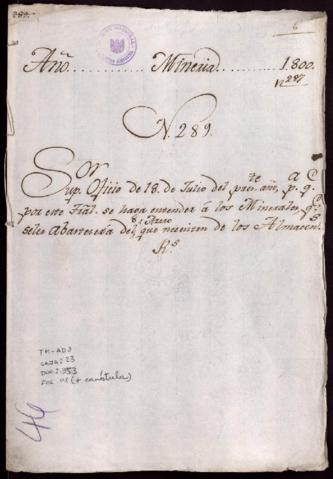 289.
6
Añ.o........Mineria........1.800.
N 287
N. 289.
Sor
Sup. Oficio de 18. de Julio del pres.te año, p.a q.e
por este Tral. se haga entender á los Mineros, q.e
seles abastecerá del Azogue que necesiten de los Almacens.
R.s
TM-AD2
CAJA: 23
DOC: 353
FOL: 08 (+ carátula)
44